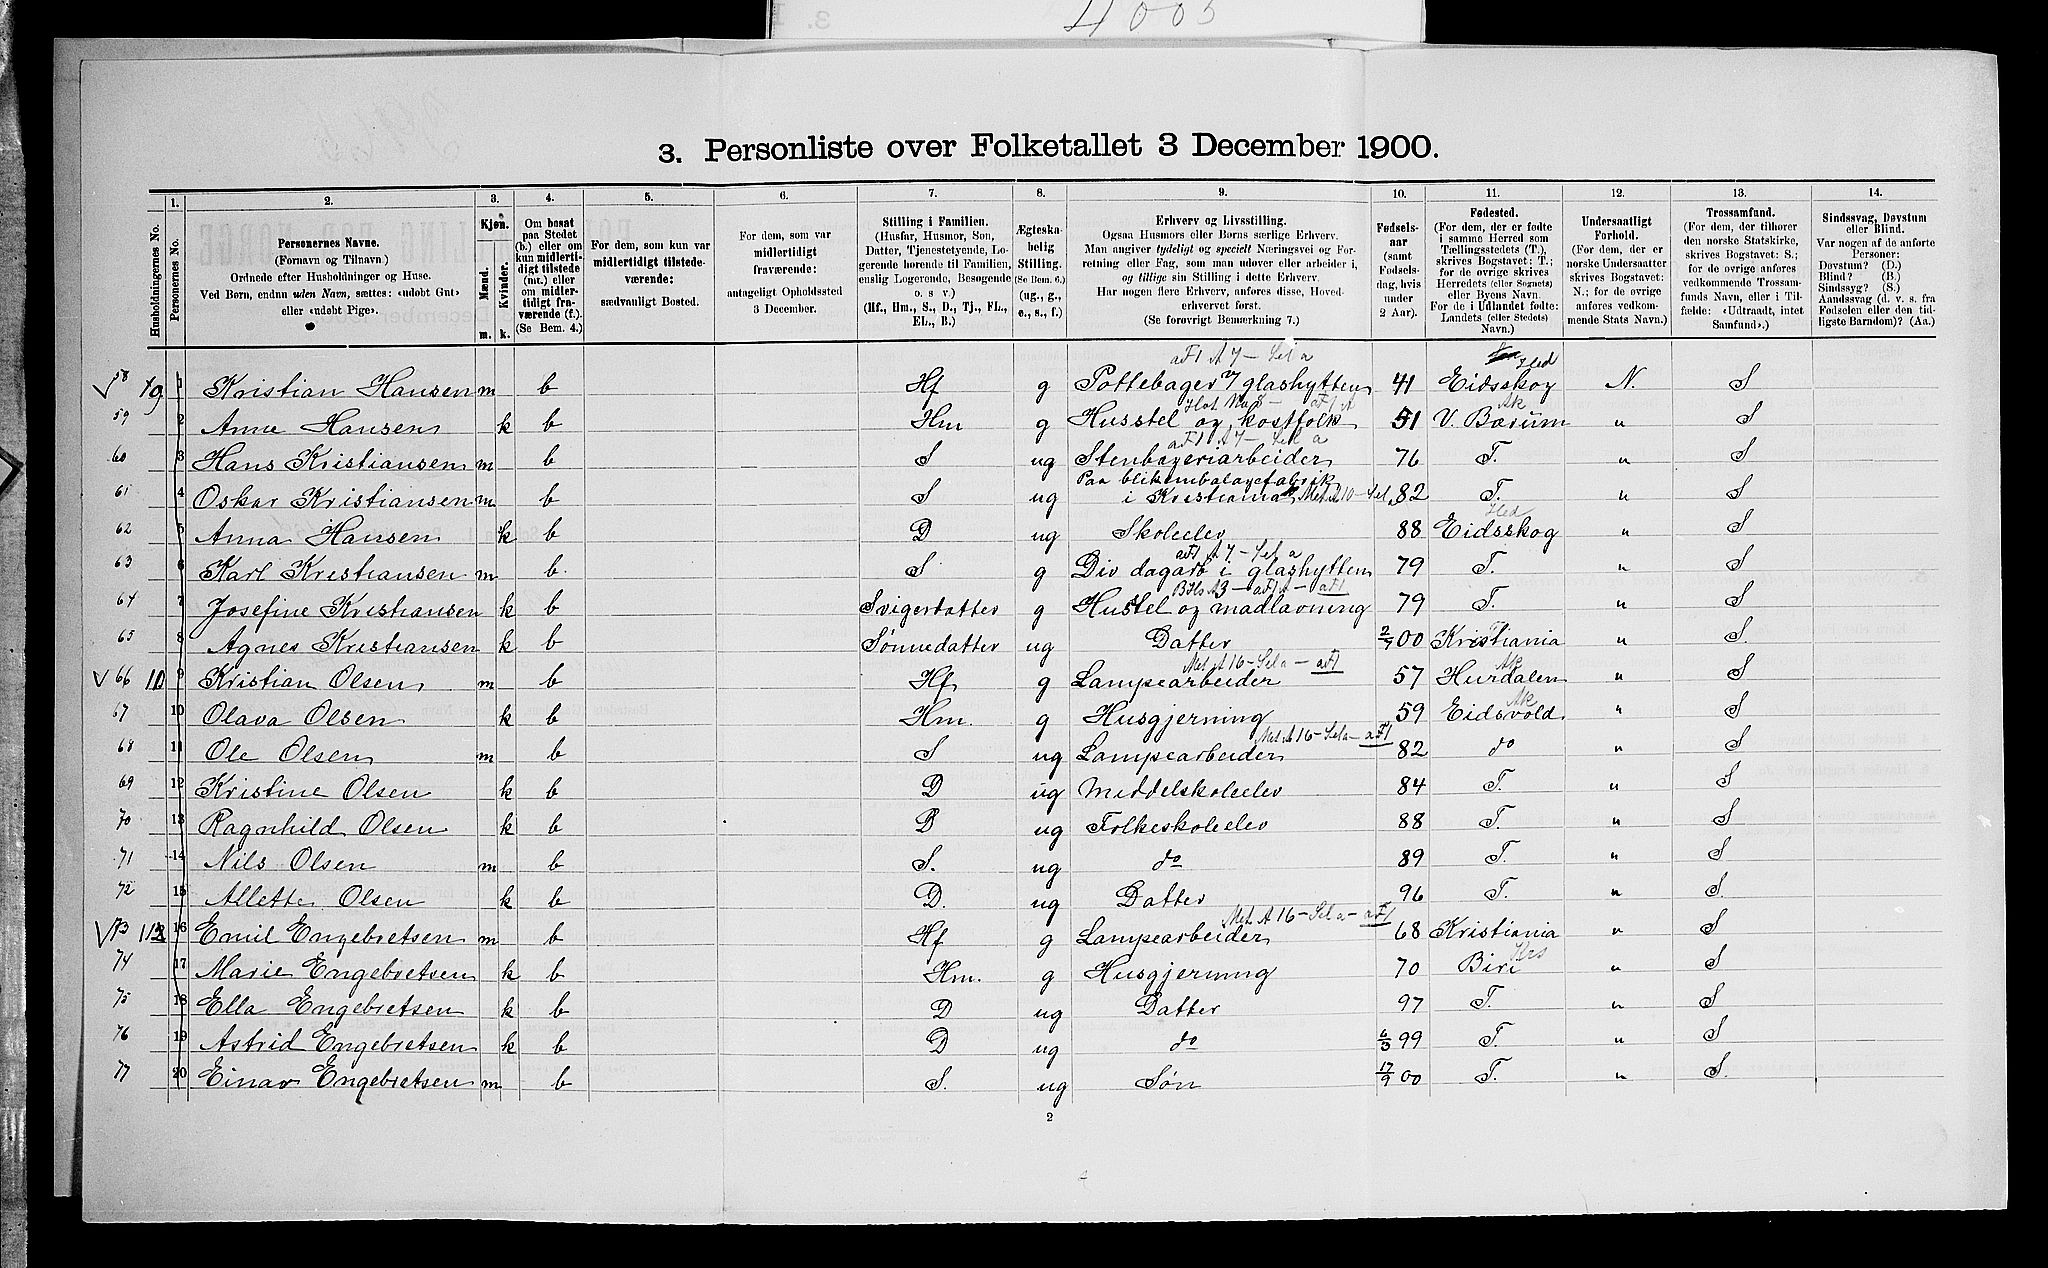 4005
3. Personliste over Folketallet 3 December 1900.
Husholdningernes No.
1. Personernes No.
2. Personernes Navne. (Fornavn og Tilnavn.) Ordnede efter Husholdninger og Huse. Ved Børn, endnu uden Navn, sættes: «udøbt Gut» eller «udøbt Pige».
3. Kjøn. Mænd. m. Kvinder. k.
4. Om bosat paa Stedet (b.) eller om kun midlertidigt tilstede (mt.) eller om midlertidigt fraværende (f.). (Se Bem. 4.)
5. For dem, som kun var midlertidigt tilstedeværende: sædvanligt Bosted.
6. For dem, som var midlertidigt fraværende: antageligt Opholdssted 3 December.
7. Stilling i Familien. (Husfar, Husmor, Søn, Datter, Tjenestetyende, Logerende hørende til Familien, enslig Logerende, Besøgende o. s. v.) (Hf., Hm., S., D., Tj., FL., EL., B.)
8. Ægteskabelig Stilling. (Se Bem. 6.) (ug., g., e., s., f.)
9. Erhverv og Livsstilling. Ogsaa Husmors eller Børns særlige Erhverv. Man angiver tydeligt og specielt Næringsvei og Forretning eller Fag, som man udøver eller arbeider i, og tillige sin Stilling i dette Erhverv. Har nogen flere Erhverv, anføres disse, Hovederhvervet først. (Se forøvrigt Bemærkning 7.)
10. Fødselsaar (samt Fødselsdag, hvis under 2 Aar).
11. Fødested. (For dem, der er fødte i samme Herred som Tællingsstedets (T.), skrives Bogstavet: T.; for de øvrige skrives Herredets (eller Sognets) eller Byens Navn. For de i Udlandet fødte: Landets (eller Stedets) Navn.)
12. Undersaatligt Forhold. (For dem, der er norske Undersaatter skrives Bogstavet: N.; for de øvrige anføres vedkommende Stats Navn.)
13. Trossamfund. (For dem, der tilhører den norske Statskirke, skrives Bogstavet: S.; for de øvrige anføres vedkommende Trossamfunds Navn, eller i Tilfælde: «Udtraadt, intet Samfund».)
14. Sindssvag, Døvstum eller Blind. Var nogen af de anførte Personer: Døvstum? (D.) Blind? (B.) Sindssyg? (S.) Aandssvag (d. v. s. fra Fødselen eller den tidligste Barndom)? (Aa.)
58 9 1 Kristian Hansen m b Hf g Pottebager v/ glashytten 41 Eidsskog Hed N. S
59 2 Anne Hansen k b Hm g Husstel og kostfolk 51 V. Bærum Ak " S
60 3 Hans Kristiansen m b S ug Stenbageriarbeider 76 T. " S
61 4 Oskar Kristiansen m b S ug Paa blikembalagefabrik i Kristiania 82 T. " S
62 5 Anna Hansen k b D ug Skoleelev 88 Eidsskog Hed " S
63 6 Karl Kristiansen m b. S g Div dagarb i glashytten 79 T. " S
64 7 Josefine Kristiansen k b Svigerdatter g Husstel og madlavning 79 T. " S
65 8 Agnes Kristiansen k b Sønnedatter ug Datter 2/7 00 Kristiania " S.
66 10 9 Kristian Olsen m b Hf g Lampearbeider 57 Hurdalen Ak " S
67 10 Olava Olsen k b Hm. g Husgjerning 59 Eidsvold Ak " S
68 11 Ole Olsen m b S ug Lampearbeider 82 do " S
69 12 Kristine Olsen k b D ug Middelskoleelev 84 T. " S
70 13 Ragnhild Olsen k b D ug Folkeskoleelev 88 T. " S
71 14 Nils Olsen m b S. ug do 89 T. " S
72 15 Allette Olsen k b D. ug Datter 96 T. " S.
73 16 Emil Engebretsen m b Hf g Lampearbeider 68 Kristiania " S
74 17 Marie Engebretsen k b Hm. g Husgjerning 70 Biri Krs " S
75 18 Ella Engebretsen k b D ug Datter 97 T. " S
76 19 Astrid Engebretsen k b D ug do 6/3 99 T. " S
77 20 Einar Engebretsen m b S. ug Søn 17/9 00 T. " S.
2